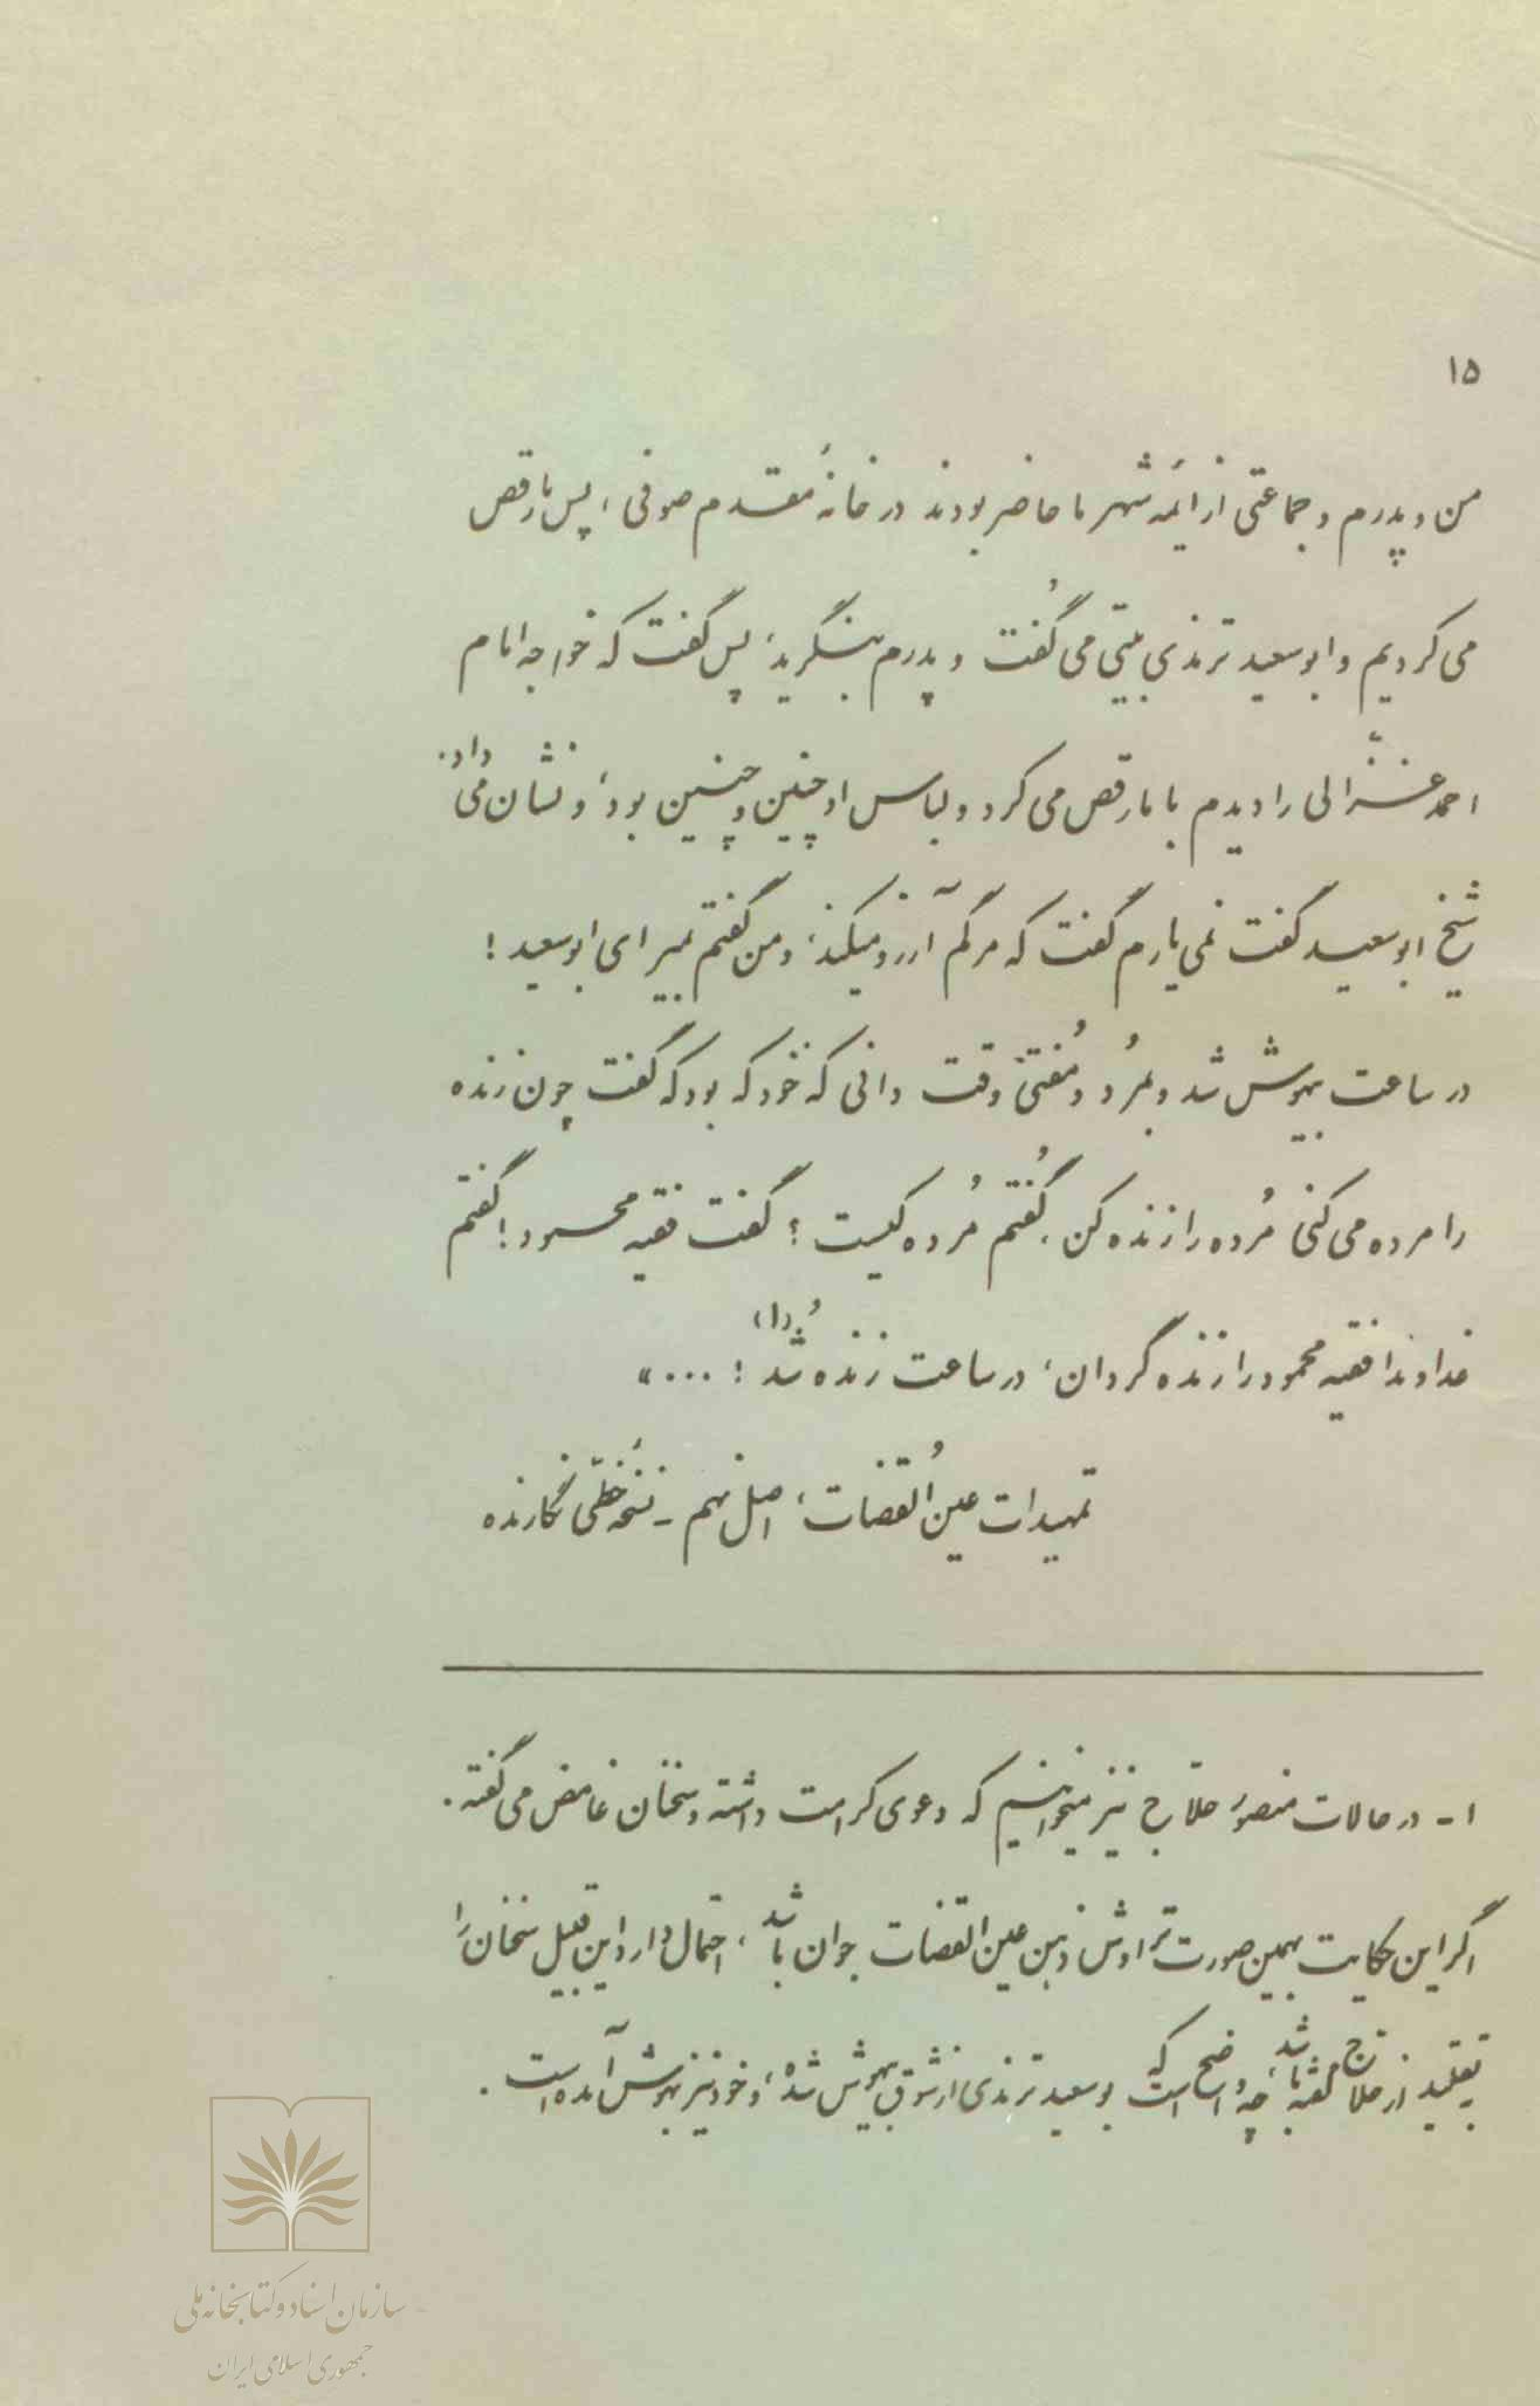 ۱۵
من و پدرم و جماعتی از ائمه شهر ما حاضر بودند در خانهٔ مقدم صوفی، پس ما رقص
می کردیم و ابوسعید ترمذی بیتی می گُفت و پدرم بنگرید، پس گفت که خواجه امام
احمد غزّالی را دیدم با ما رقص می کرد و لباس او چنین و چنین بود، و نشان می داد.
شیخ ابوسعید گفت نمی یارم گفت که مرگم آرزو میکند، و من گفتم بمیر ای ابوسعید!
در ساعت بیهوش شد و بمُرد و مُفتی وقت دانی که خود که بود که گفت چون زنده
را مرده می کنی مُرده را زنده کن. گُفتم مُرده کیست؟ گفت فقیه محمود! گفتم
خداوندا فقیه محمود را زنده گردان، در ساعت زنده شُد (۱)! ....»
تمهیدات عین القُضات، اصل نهم - نسخهٔ خطّی نگارنده
۱- در حالات منصور حلاج نیز میخوانیم که دعوی کرامت داشته و سخنان غامض می گفته.
اگر این حکایت بهمین صورت تراوش ذهن عین القضات جوان باشد، احتمال دارد این قبیل سخنان را
بتقلید از حلاج گفته باشد، چه واضح است که بوسعید ترمذی از شوق بیهوش شده، و خود نیز بهوش آمده است.
سازمان اسناد و کتابخانه ملی
جمهوری اسلامی ایران